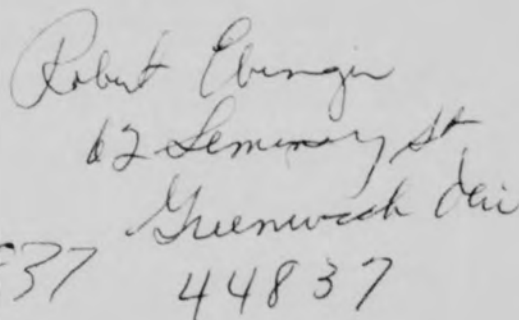 Robert Ebinger
62 Seminary St
Greenwich
37 44837